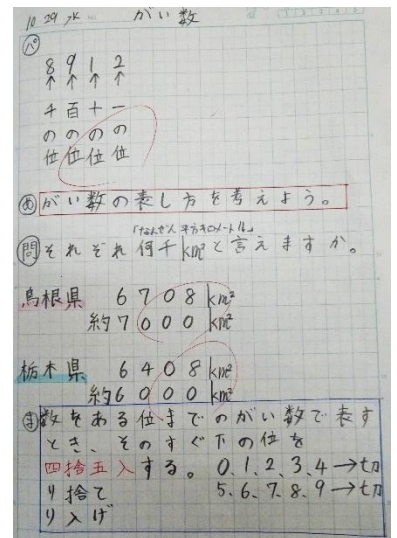 10.29 水 がい数
パ
8 9 1 2
↑ ↑ ↑ ↑
千 百 十 一
の の の の
位 位 位 位
め がい数の表し方を考えよう。
「なんぜん 平方キロメートル」
問 それぞれ何千km²と言えますか。
島根県 6708km²
約7000km²
栃木県 6408km²
約6000km²
ま 数をある位までのがい数で表す
とき、そのすぐ下の位を
四捨五入する。 0、1、2、3、4→切
り捨て 5、6、7、8、9→切
り入げ